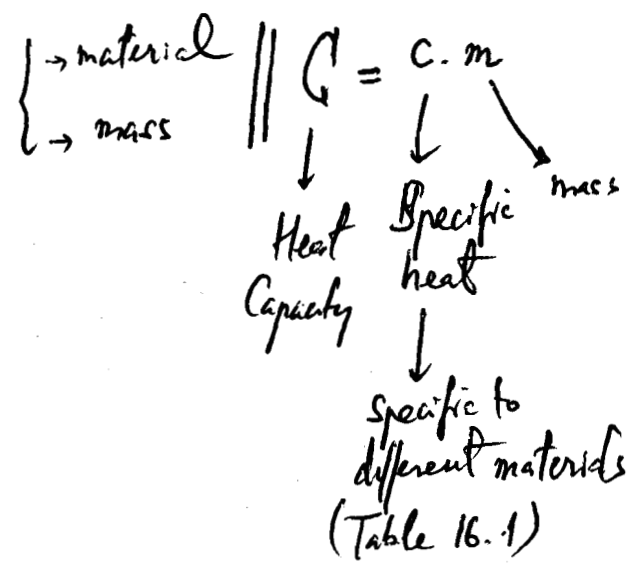 → material
→ mass
C = c. m
mass
Heat
Capacity
Specific
heat
specific to
different materials
(Table 16.1)